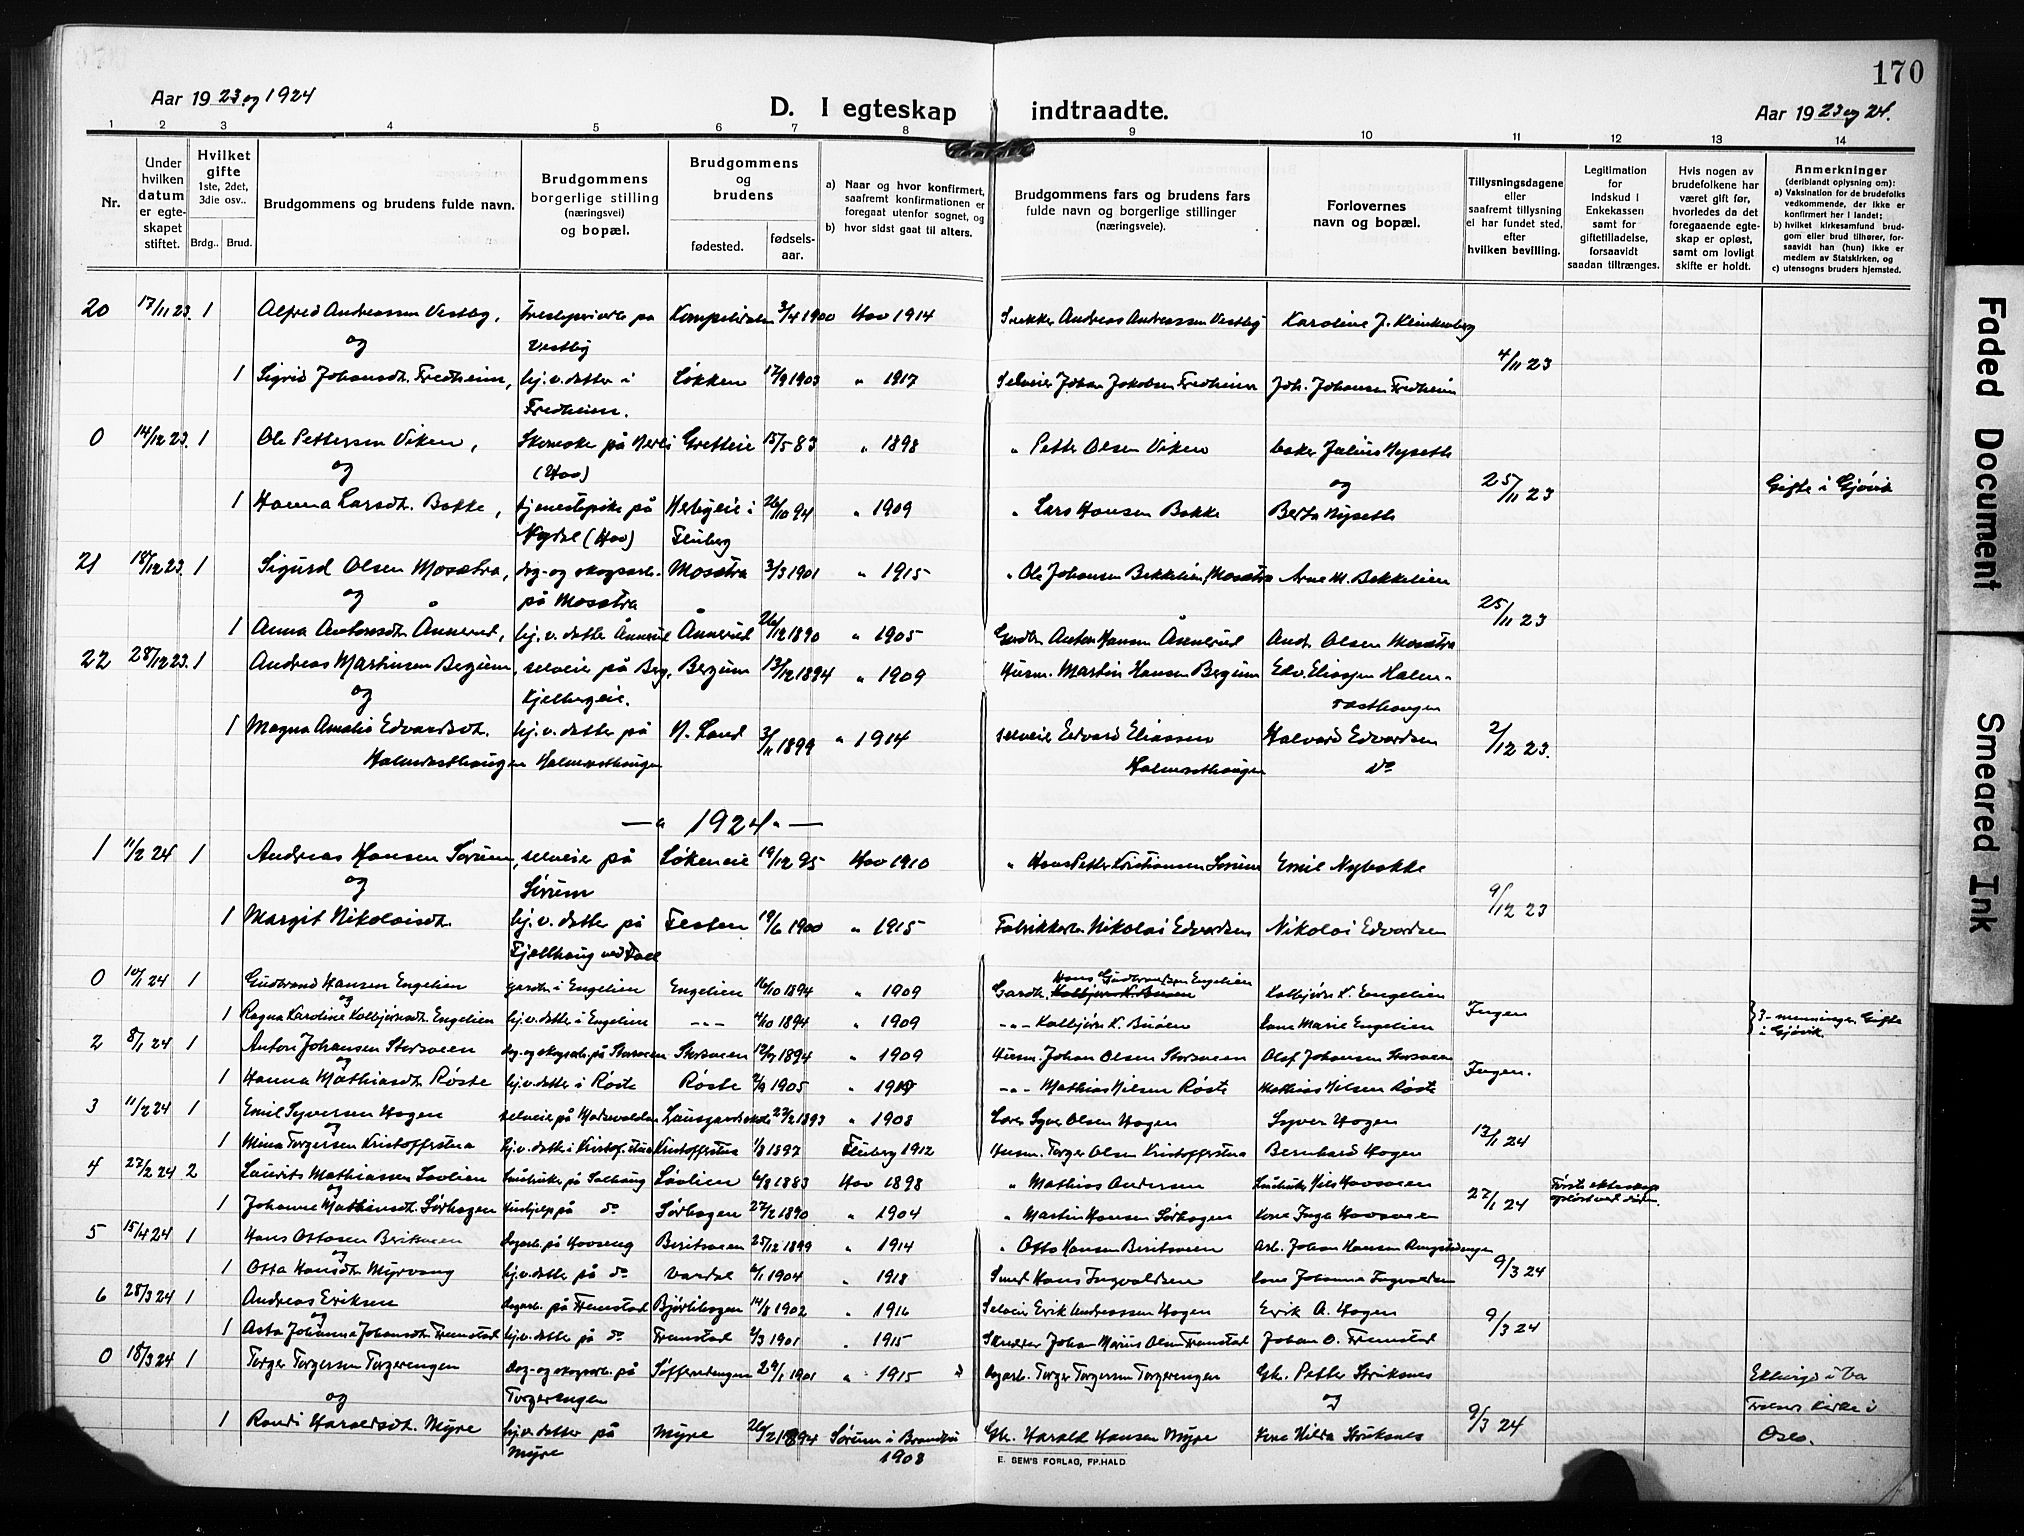 170
Aar 1923 og 1924
D. I egteskap indtraadte.
Aar 1923 og 24.
1 2 3 4 5 6 7 8 9 10 11 12 13 14
Nr.
Under hvilken datum er egteskapet stiftet.
Hvilket gifte 1ste, 2det, 3die osv..
Brdg.. Brud.
Brudgommens og brudens fulde navn.
Brudgommens borgerlige stilling (næringsvei) og bopæl.
Brudgommens og brudens
fødested. fødsels-aar.
a) Naar og hvor konfirmert, saafremt konfirmationen er foregaat utenfor sognet, og
b) hvor sidst gaat til alters.
Brudgommens fars og brudens fars fulde navn og borgerlige stillinger (næringsveie).
Forlovernes navn og bopæl.
Tillysningsdagene eller saafremt tillysning ei har fundet sted, efter hvilken bevilling.
Legitimation for indskud i Enkekassen samt for giftetilladelse, forsaavidt saadan tiltrænges.
Hvis nogen av brudefolkene har været gift før, hvorledes da det foregaaende egteskap er opløst, samt om lovligt skifte er holdt.
Anmerkninger (deriblandt oplysning om):
a) Vaksination for de brudefolks vedkommende, der ikke er konfirmert her i landet;
b) hvilket kirkesamfund brudgom eller brud tilhører, forsaavidt han (hun) ikke er medlem av Statskirken, og
c) utensogns bruders hjemsted.
20 17/11 23. 1 Alfred Andreassen Vestby, på 3/4 1900 Hov 1914 Snekker Andreas Andreassen Vestby Karoline J. Klinkenberg
og Vestby
4/11 23
1 Sigrid Johansdt. Fredheim, hj.v. datter i Løkken 17/9 1903 " 1917 Selveier Johan Jakobsen Fredheim Joh. Johansen Fredheim
Fredheim.
0 14/12 23. 1 Ole Pettersen Viken, på (Hov) 15/5 83 " 1898 " Petter Olsen Viken Julius Nyseth
og og 25/11 23 Gifte i Gjøvik
1 Hanna Larsdt. Bakke, tjenestepike på Nydal (Hov) i Fluberg 26/10 94 " 1909 " Lars Hansen Bakke Berta Nyseth
21 18/12 23. 1 Sigurd Olsen Mosætra, dag- og skogsarb. på Mosætra Mosætra 3/3 1901 " 1915 " Ole Johansen Bekkelien, Mosætra Arne M. Bekkelien
og 25/11 23
1 Anna Antonsdt. Ånnerud, hj.v. datter Ånnerud Ånnerud 26/12 1890 " 1905 Anton Hansen Ånnerud Andr. Olsen Mosætra
22 28/12 23. 1 Andreas Martinsen Bergum, selveier på Berg, Kjelbergeie. Bergum 13/12 1894 " 1909 Husm. Martin Hansen Bergum Edv. Eliassen Halmrasthaugen
og 2/12 23.
1 Magna Amalia Edvardsdt. Halmrasthaugen hj.v. datter på Halmrasthaugen N. Land 3/11 1899 " 1914 selveier Edvard Eliassen Halmrasthaugen Halvard Edvardsen do
—"1924"—
1 11/2 24 1 Andreas Hansen Sørum, selveier på Sørum Løkeneie 19/12 95 Hov 1910 " Hans Petter Kristiansen Sørum Emil Nybakke
og 9/12 23
1 Margit Nikolaisdt. hj.v. datter på Fjellhaug ved Festen 19/6 1900 " 1915 Fabrikkarb. Nikolai Edvardsen Nikolai Edvardsen
0 10/1 24 1 Gudbrand Hansen Engelien gårdbr. i Engelien Engelien 16/10 1894 " 1909 Gårdbr. Hans Gudbrandsen Engelien Kolbjørn K. Engelien
og Ingen
1 Ragna Karoline Kolbjørnsdt. Engelien hj.v. datter i Engelien -"- 4/10 1894 " 1909 -"- Kolbjørn K. Kone Marie Engelien 3-menninger. Gifte i Gjøvik
2 8/1 24 1 Anton Johansen Storsveen dag- og skogsarb. på Storsveen Storsveen 1894 " 1909 Husm. Johan Olsen Storsveen Olaf Johansen Storsveen
og Ingen.
1 Hanna Mathiasdt. Røste hj.v. datter i Røste Røste 1905 " -"- Mathias Nilsen Røste Mathias Nilsen Røste
3 11/2 24 1 Emil Syversen Hagen selveier på 27/2 1893 " 1908 Syver Olsen Hagen Syver Hagen
og 13/1 24
1 Mina Torgersen Kristofferstua hj.v. datter i Kristof.stua Kristofferstua 1/8 1897 Fluberg 1912 Husm. Torger Olsen Kristofferstua Bernhard Hagen
4 27/2 24 2 Laurits Mathiassen Løvlien på Solhaug Løvlien 1883 Hov 1898 " Mathias Andersen Nils Hovsveen
og 27/1 24 Første ekteskap opløst ved døden.
1 Johanne Mathinsdt. Sørhagen hushjelp på do Sørhagen 27/2 1890 " 1904 " Martin Hansen Sørhagen Kone Inga Hovsveen
5 15/4 24 1 Hans Ottosen Beritsveen dagarb. på Hovseng Beritsveen 25/12 1899 " 1914 " Otto Hansen Beritsveen Arb. Johan Hansen
og 9/3 24
1 Otta Hansdt. Myrvang hj.v. datter på do Vardal 1904 " 1918 Smed Hans Ingvaldsen Kone Johanna Ingvaldsen
6 28/3 24 1 Andreas Eriksen dagarb. på Framstad Bjørlihagen 14/8 1902 " 1916 Selveier Erik Andreassen Hagen Erik A. Hagen
og 9/3 24
1 Asta Johanna Johansdt. Framstad hj.v. datter på do Framstad 1901 " 1915 Skredder Johan Marius Olsen Framstad Johan O. Framstad
0 18/3 24 1 Torger Torgersen Torgerengen dag- og skogsarb. på Torgerengen 29/1 1901 " 1915 dagarb. Torger Torgersen Torgerengen Gbr. Petter Struksnes Ekteviet i Vår
og og 9/3 24 Frelsers kirke i
1 Randi Haraldsdt. Myre hj.v. datter på Myre Myre 26/2 1894 Sørum i Brandbu 1908 Gbr. Harald Hansen Myre Kone Hilda Struksnes Oslo.
E. SEM'S FORLAG, FR.HALD
Faded Document
Smeared Ink